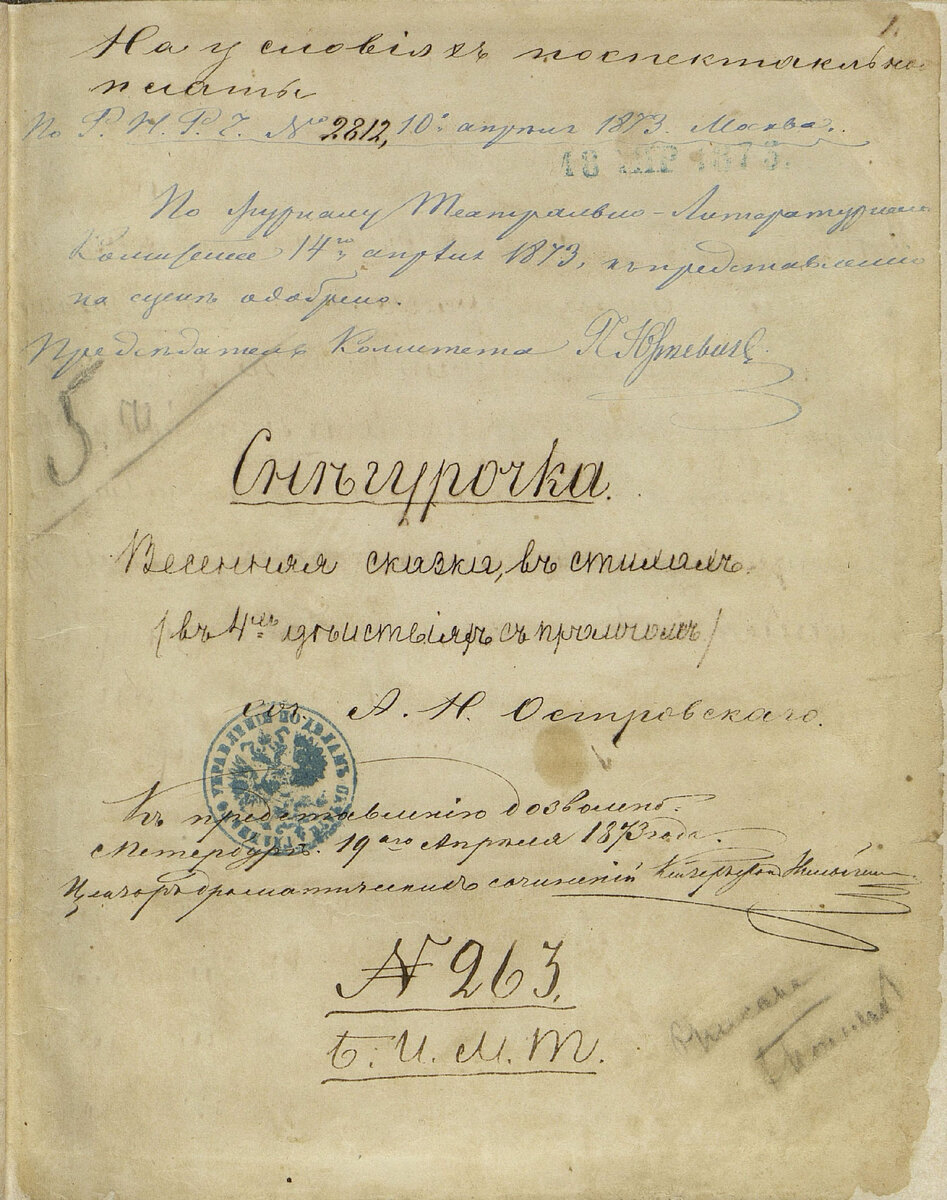 1.
На условіяхъ поспектакльной
платы
По Р. И. Р. Т. № 2812, 10го апрѣля 1873. Москва.
18 АПР 1873.
По журналу Театрально-Литературнаго
Комитета 14го апрѣля 1873, къ представленію
на сценѣ одобрено.
Предсѣдатель Комитета П Юркевичъ
5.
Снѣгурочка.
Весенняя сказка, въ стихахъ.
/въ 4хъ дѣйствіяхъ съ прологомъ/
соч. А. Н. Островскаго.
ГЛАВНОЕ УПРАВЛЕНІЕ ПО ДѢЛАМЪ ПЕЧАТИ
Къ представленію дозволено.
С.Петербургъ. 19аго Апрѣля 1873 года
Цензоръ драматическихъ сочиненій
№ 263.
Б. И. М. Т.